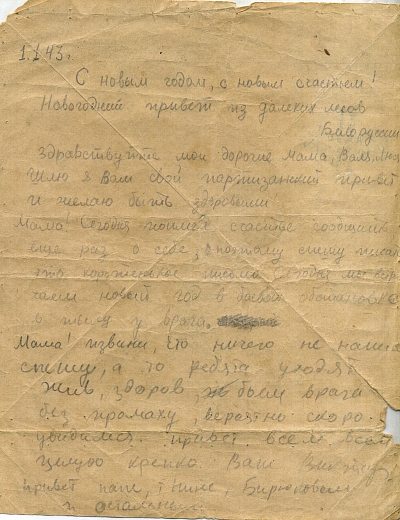 1.1.43 г.
С новым годом, с новым счастьем!
Новогодний привет из далеких лесов
Белоруссии
Здравствуйте мои дорогие Мама, Валя, Люся
Шлю я Вам свой партизанский привет
и желаю быть здоровыми
Мама! Сегодня счастье сообщить
еще раз о себе, а поэтому спешу писать
это коротенькое письмо. Сегодня мы встр
чаем новый год в боевой обстановке
в тылу у врага.
Мама! извини, что ничего не написал
спешу, а то ребята уходят
Жив, здоров, бьем врага
без промаху вероятно скоро
увидимся. привет всем всем
целую крепко Ваш Виктор
Привет папе, Нине, Бирюковым
и остальным